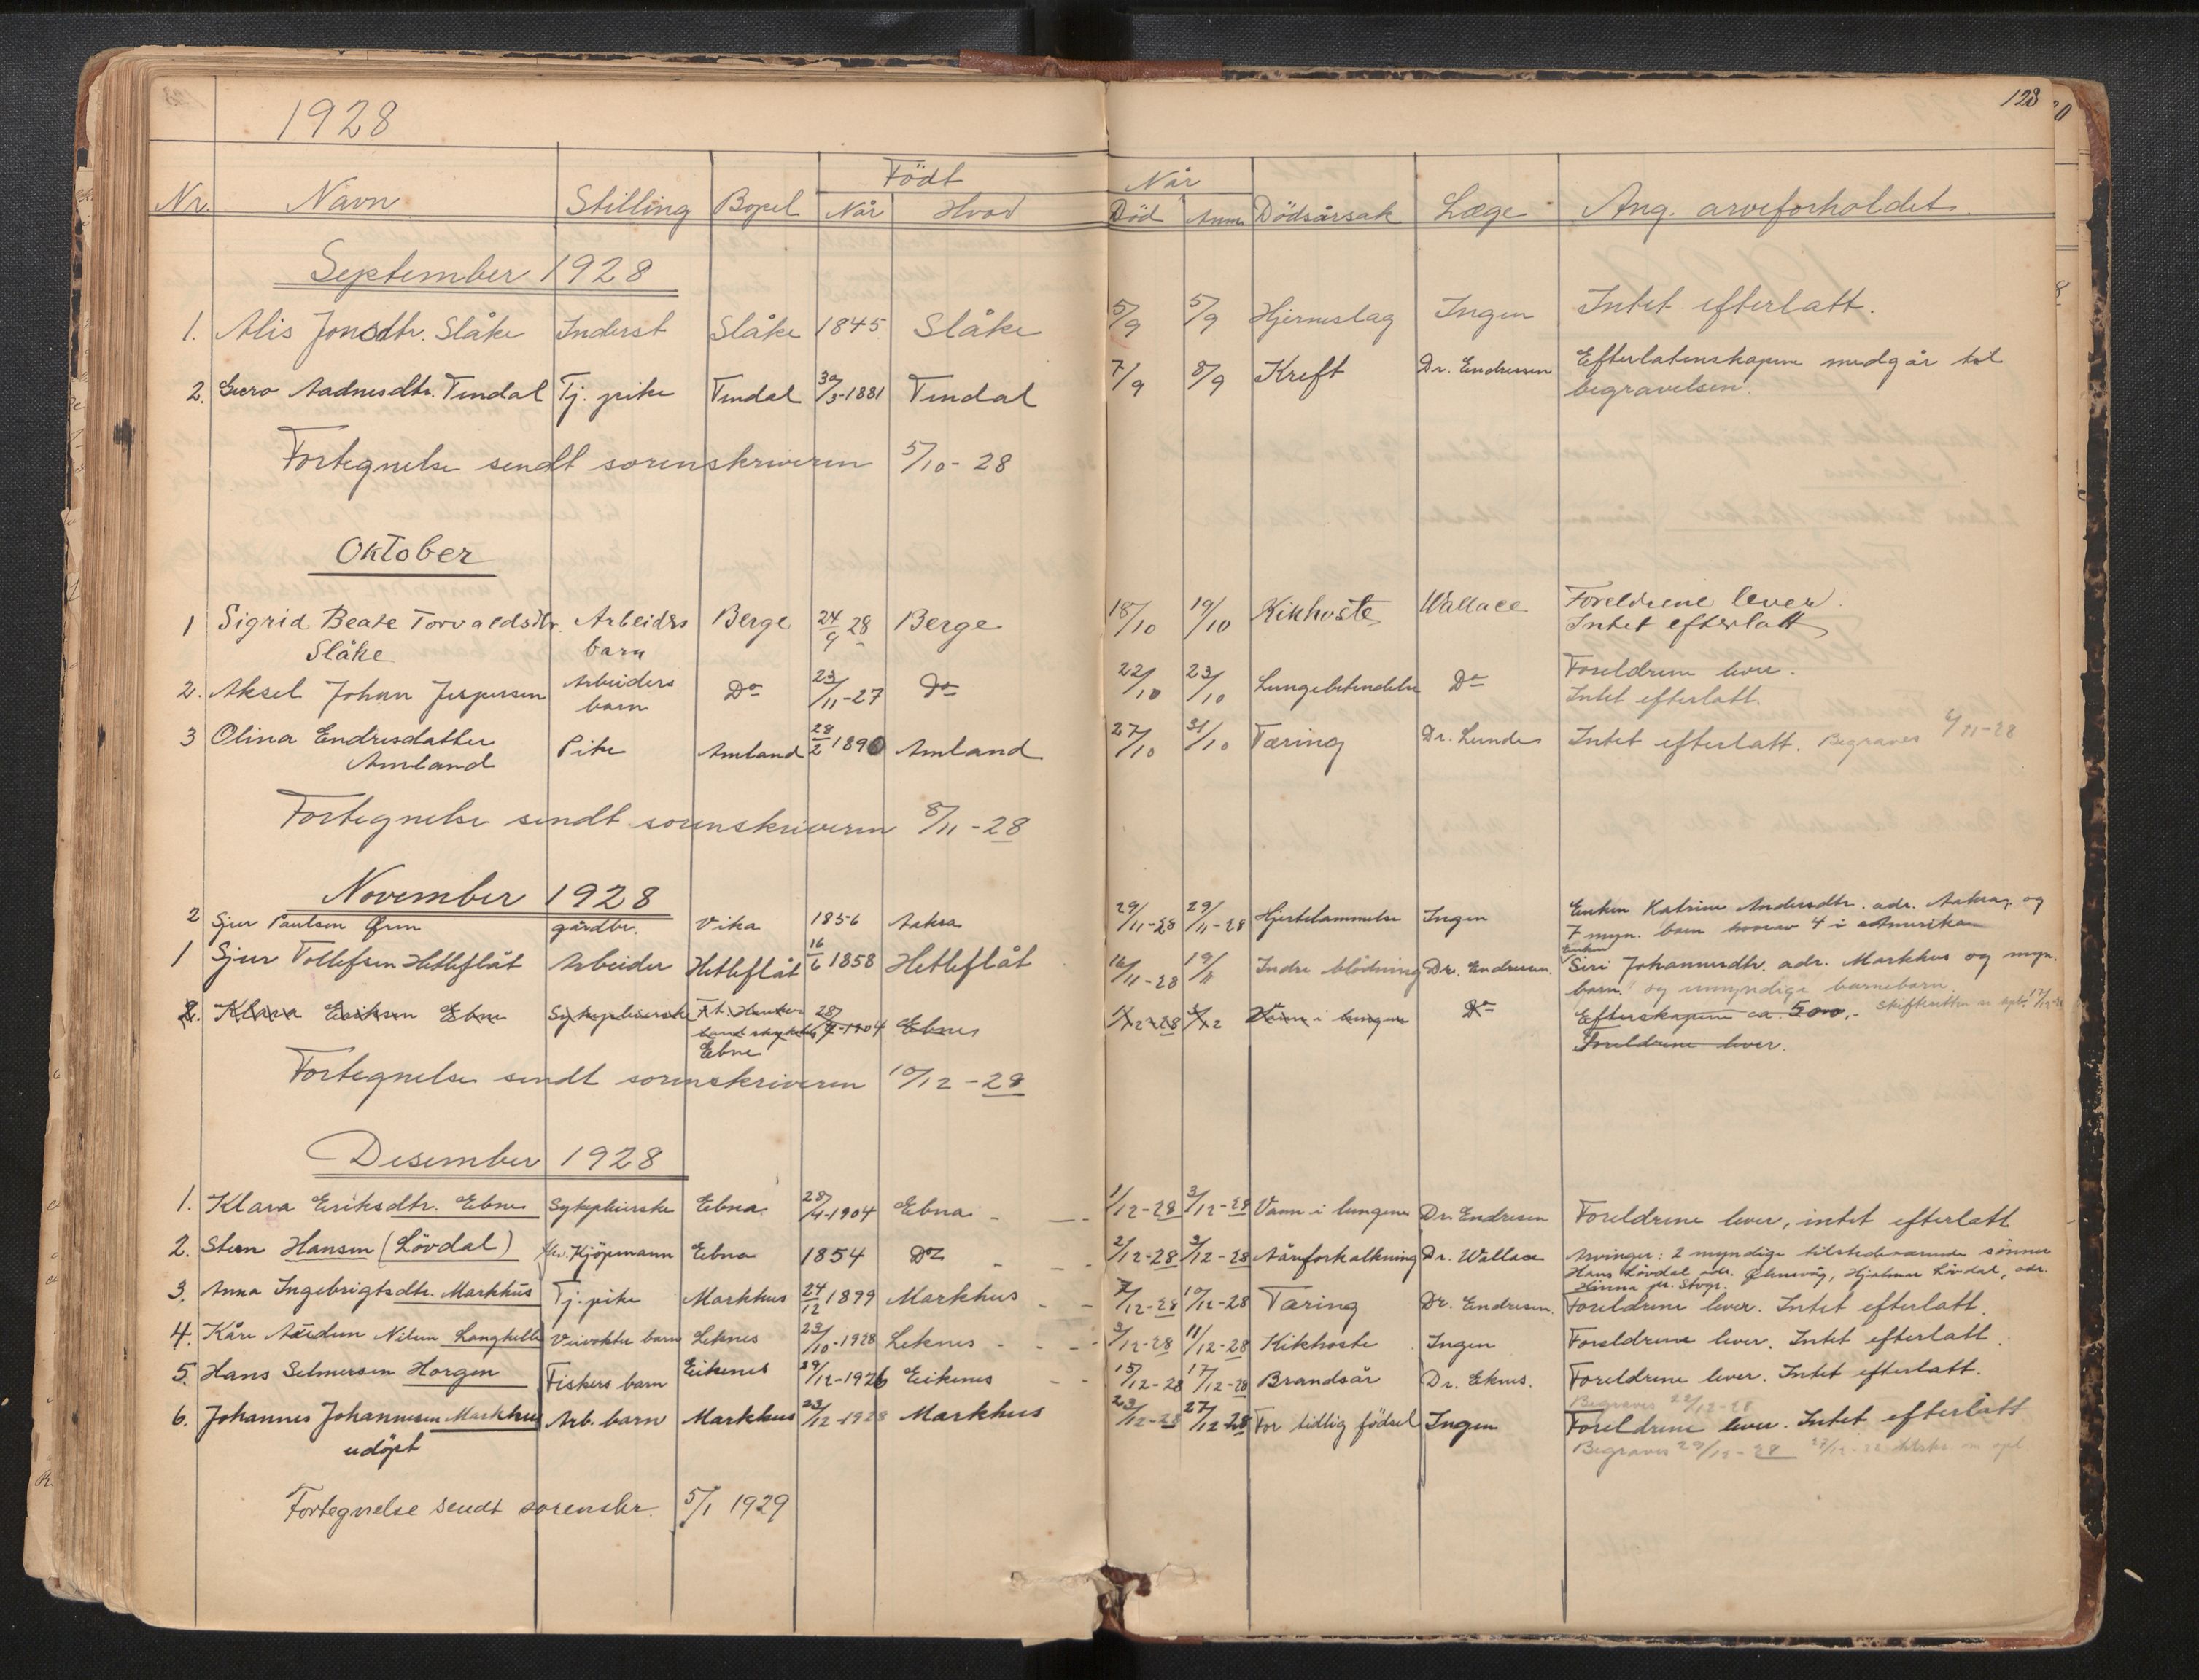 1928
123
Nr. Navn Stilling Bopel Født Når Hvor Når Död Anm. Dödsårsak Læge Ang. arveforholdet.
September 1928
1. Alis Jonsdtr. Slåke Inderst Slåke 1845 Slåke 5/9 5/9 Hjerneslag Ingen Intet efterlatt.
2. Guro Aadnesdtr. Tindal Tj. pike Tindal 30/3-1881 Tindal 7/9 8/9 Kreft Dr. Endresen Efterlatenskapene medgår til
begravelsen.
Fortegnelse sendt sorenskriveren 5/10-28
Oktober
1 Sigrid Beate Torvaldsdtr. Arbeiders Berge 24/9 28 Berge 18/10 19/10 Kikhoste Wallace Foreldrene lever.
Slåke barn Intet efterlatt
2. Aksel Johan Jespersen Arbeiders barn Do 23/11-27 Do 22/10 23/10 Lungebetendelse Do Foreldrene lever.
Intet efterlatt.
3 Olina Endresdatter Pike Amland 28/2 1890 Amland 27/10 31/10 Tæring Dr. Lunde Intet efterlatt. Begraves 6/11-28
Amland
Fortegnelse sendt sorenskriveren 8/11-28
November 1928
2 Sjur Paulsen Ørn gårdbr. Vika 1856 Aakra 29/11-28 29/11-28 Hjertelammelse Ingen Enken Katrine Andersdtr. adr. Aakra, og
7 myn. barn hvorav 4 i Amerika
1 Sjur Tollefsen Hetleflåt Arbeider Hetleflåt 16/6 1858 Hetleflåt 16/11-28 19/11 Indre blödning Dr. Endresen. Enken Siri Johannesdtr. adr. Markhus og myn.
barn. og umyndige barnebarn
2. Klara Eriksen Ebne Sykepleierske 28/4-1904 Ebnes 1/12-28 3/12 Vann i lungene Do Efterskapene ca. 500,- Skifteretten
Ebne Foreldrene lever.
Fortegnelse sendt sorenskriveren 10/12-28
Desember 1928
1. Klara Eriksdtr. Ebne Sykepleierske Ebna 28/4-1904 Ebna 1/12-28 3/12-28 Vann i lungene Dr. Endresen Foreldrene lever, intet efterlatt
2. Steen Hansen (Lövdal) Kjöpmann Ebna 1854 Do 2/12-28 3/12-28 Aareforkalkning Dr. Wallace Arvinger: 2 myndige tilstedeværende sönner
Hans Lövdal adr. Ølensvåg, Hjalmar Lövdal, adr.
Hinna pr. Stvgr.
3. Anna Ingebrigtsdtr. Markhus Tj. pike Markhus 24/12 1899 Markhus 7/12-28 10/12-28 Tæring Dr. Endresen. Foreldrene lever. Intet efterlatt.
4. Kåre Audun Nilsen Langhelle Veivokter barn Leknes 23/10-1928 Leknes 3/12-28 11/12-28 Kikhoste Ingen Foreldrene lever. Intet efterlatt.
5. Hans Selmersen Horgen Fiskers barn Eikenes 29/12-1926 Eikenes 15/12-28 17/12-28 Brandsår Dr. Eknes. Foreldrene lever. Intet efterlatt.
Begraves 22/12-28
6. Johannes Johannesen Markhus Arb. barn Markhus 23/12-1928 Markhus 23/12-28 27/12-28 For tidlig födsel Ingen Foreldrene lever. Intet efterlatt
udöpt Begraves 29/12-28
Fortegnelse sendt sorenskr. 5/1 1929